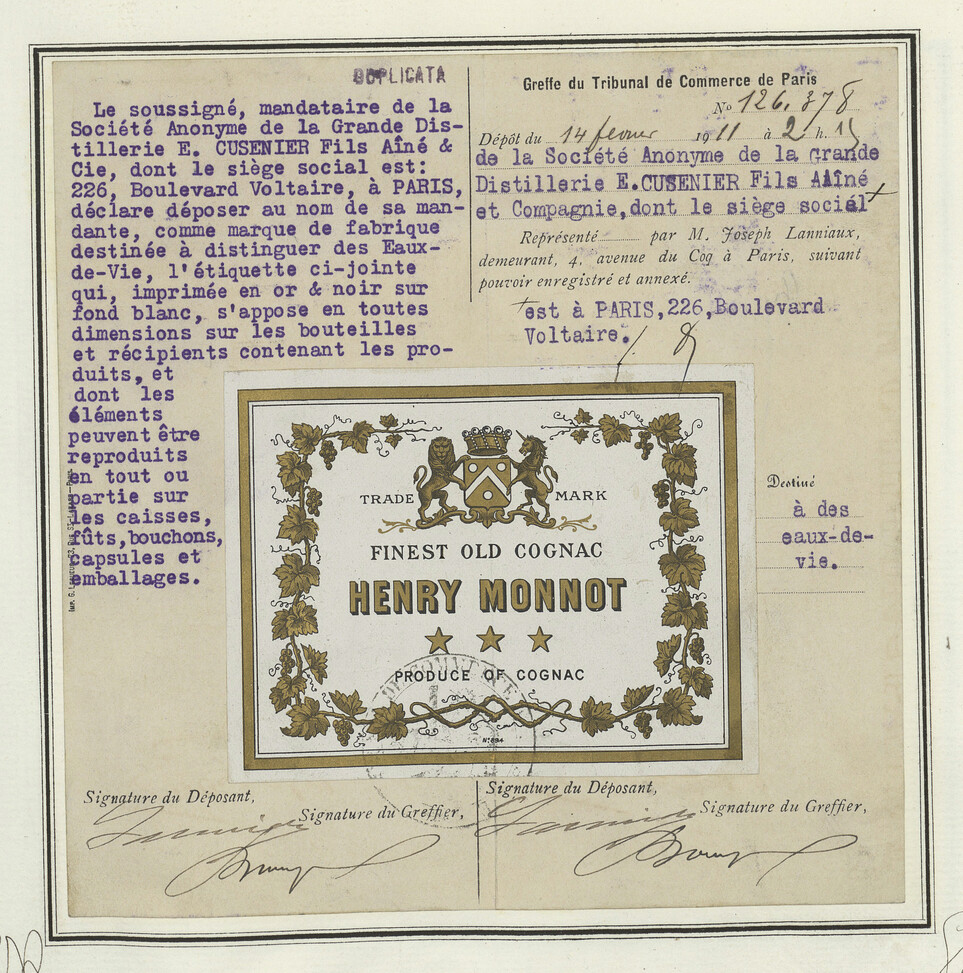 DUPLICATA
Le soussigné, mandataire de la
Société Anonyme de la Grande Dis-
tillerie E. CUSENIER Fils Aîné &
Cie, dont le siège social est:
226, Boulevard Voltaire, à PARIS,
déclare déposer au nom de sa man-
dante, comme marque de fabrique
destinée à distinguer des Eaux-
de-Vie, l'étiquette ci-jointe
qui, imprimée en or & noir sur
fond blanc, s'appose en toutes
dimensions sur les bouteilles
et récipients contenant les pro-
duits, et
dont les
éléments
peuvent être
reproduits
en tout ou
partie sur
les caisses,
fûts,bouchons,
capsules et
emballages.
Greffe du Tribunal de Commerce de Paris
No 126.378
Dépôt du 14 fevrier 1911 à 2 h. 15
de la Société Anonyme de la Grande
Distillerie E.CUSENIER Fils Aîné
et Compagnie,dont le siège social +
Représenté par M. Joseph Lanniaux,
demeurant, 4, avenue du Coq à Paris, suivant
pouvoir enregistré et annexé.
+est à PARIS,226,Boulevard
Voltaire.
TRADE MARK
FINEST OLD COGNAC
HENRY MONNOT
PRODUCE OF COGNAC
No 894
Destiné
à des
eaux-de-
vie.
Signature du Déposant,
Signature du Greffier,
Signature du Déposant,
Signature du Greffier,